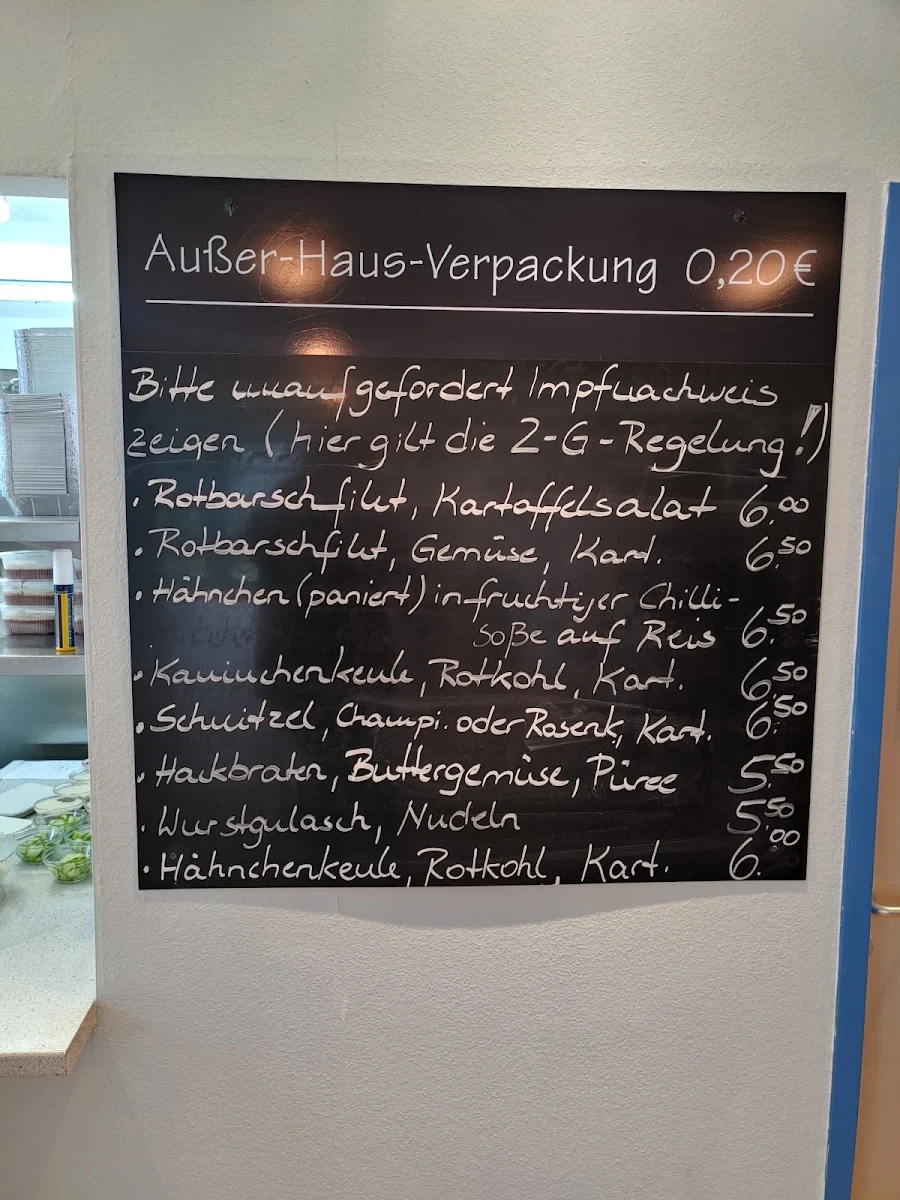 Außer-Haus-Verpackung 0,20€
Bitte unaufgefordert Impfnachweis
zeigen (hier gilt die 2-G-Regelung!)
· Rotbarschfilet, Kartoffelsalat 6.00
· Rotbarschfilet, Gemüse, Kart. 6.50
· Hähnchen (paniert) in fruchtiger Chilli-
soße auf Reis 6.50
· Kaninchenkeule, Rotkohl, Kart. 6.50
· Schnitzel, Champi. oder Rosenk., Kart. 6.50
· Hackbraten, Buttergemüse, Püree 5.50
· Wurstgulasch, Nudeln 5.50
· Hähnchenkeule, Rotkohl, Kart. 6.00